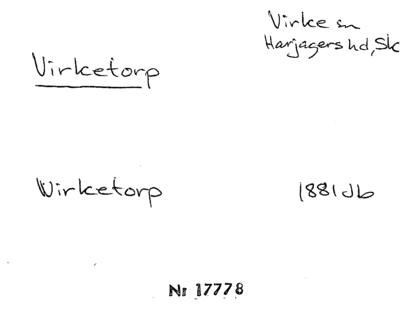 Virke sn
Harjagers hd, Sk
Virketorp
Wirketorp 1881 Jb
Nr 17778